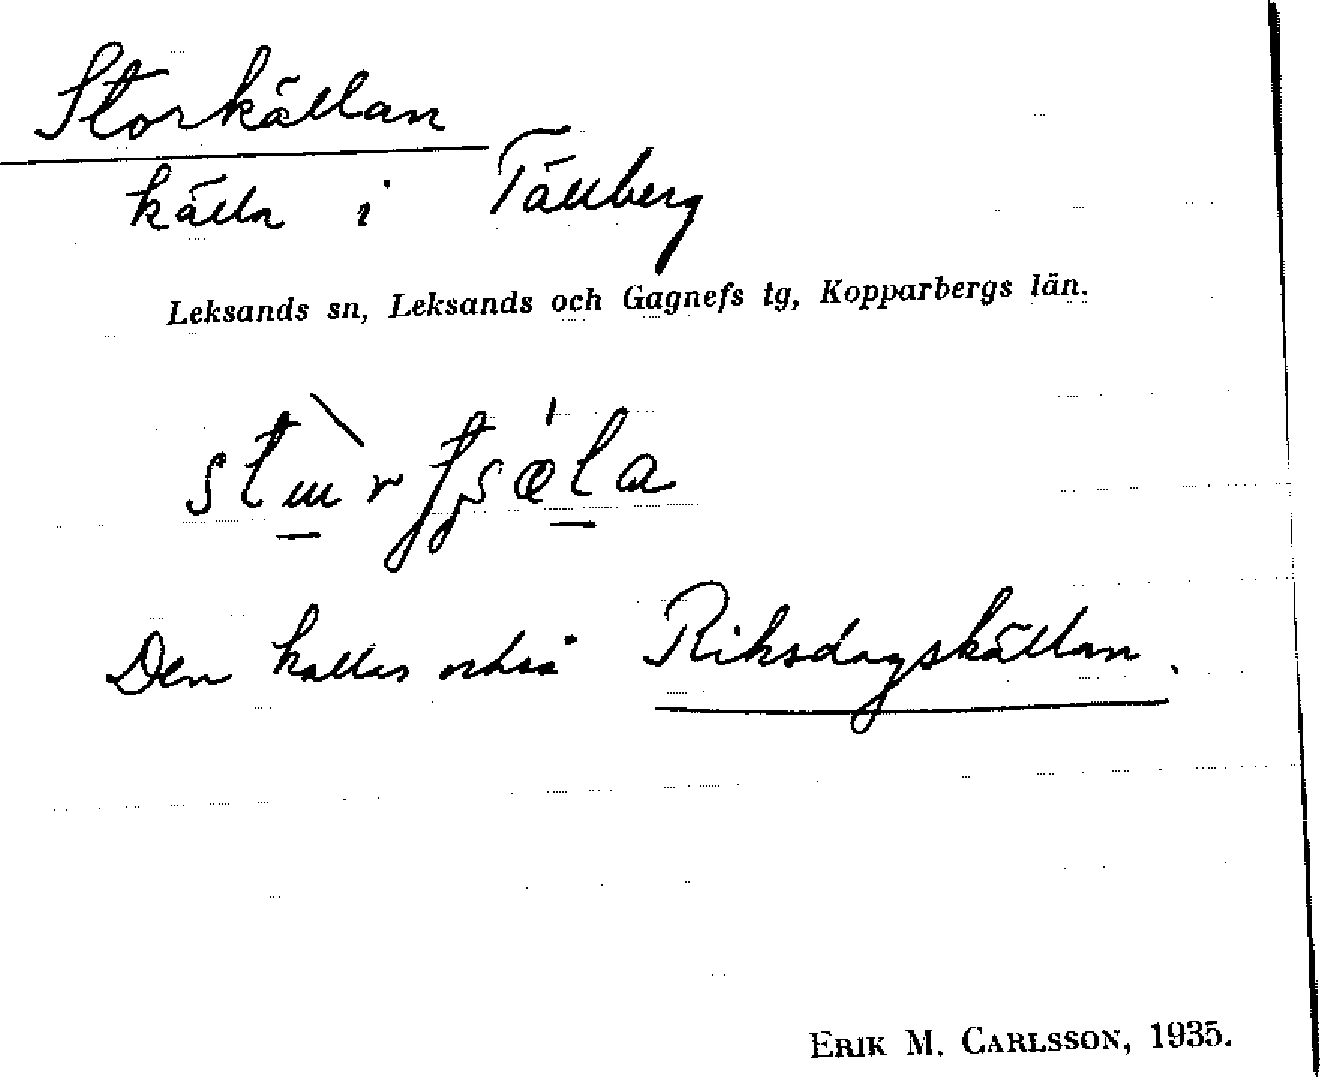 Storkällan
källa i Tällberg
Leksands sn, Leksands och Gagnefs tg, Kopparbergs län.
Den kallas också Riksdagskällan.
ERIK M. CARLSSON, 1935.